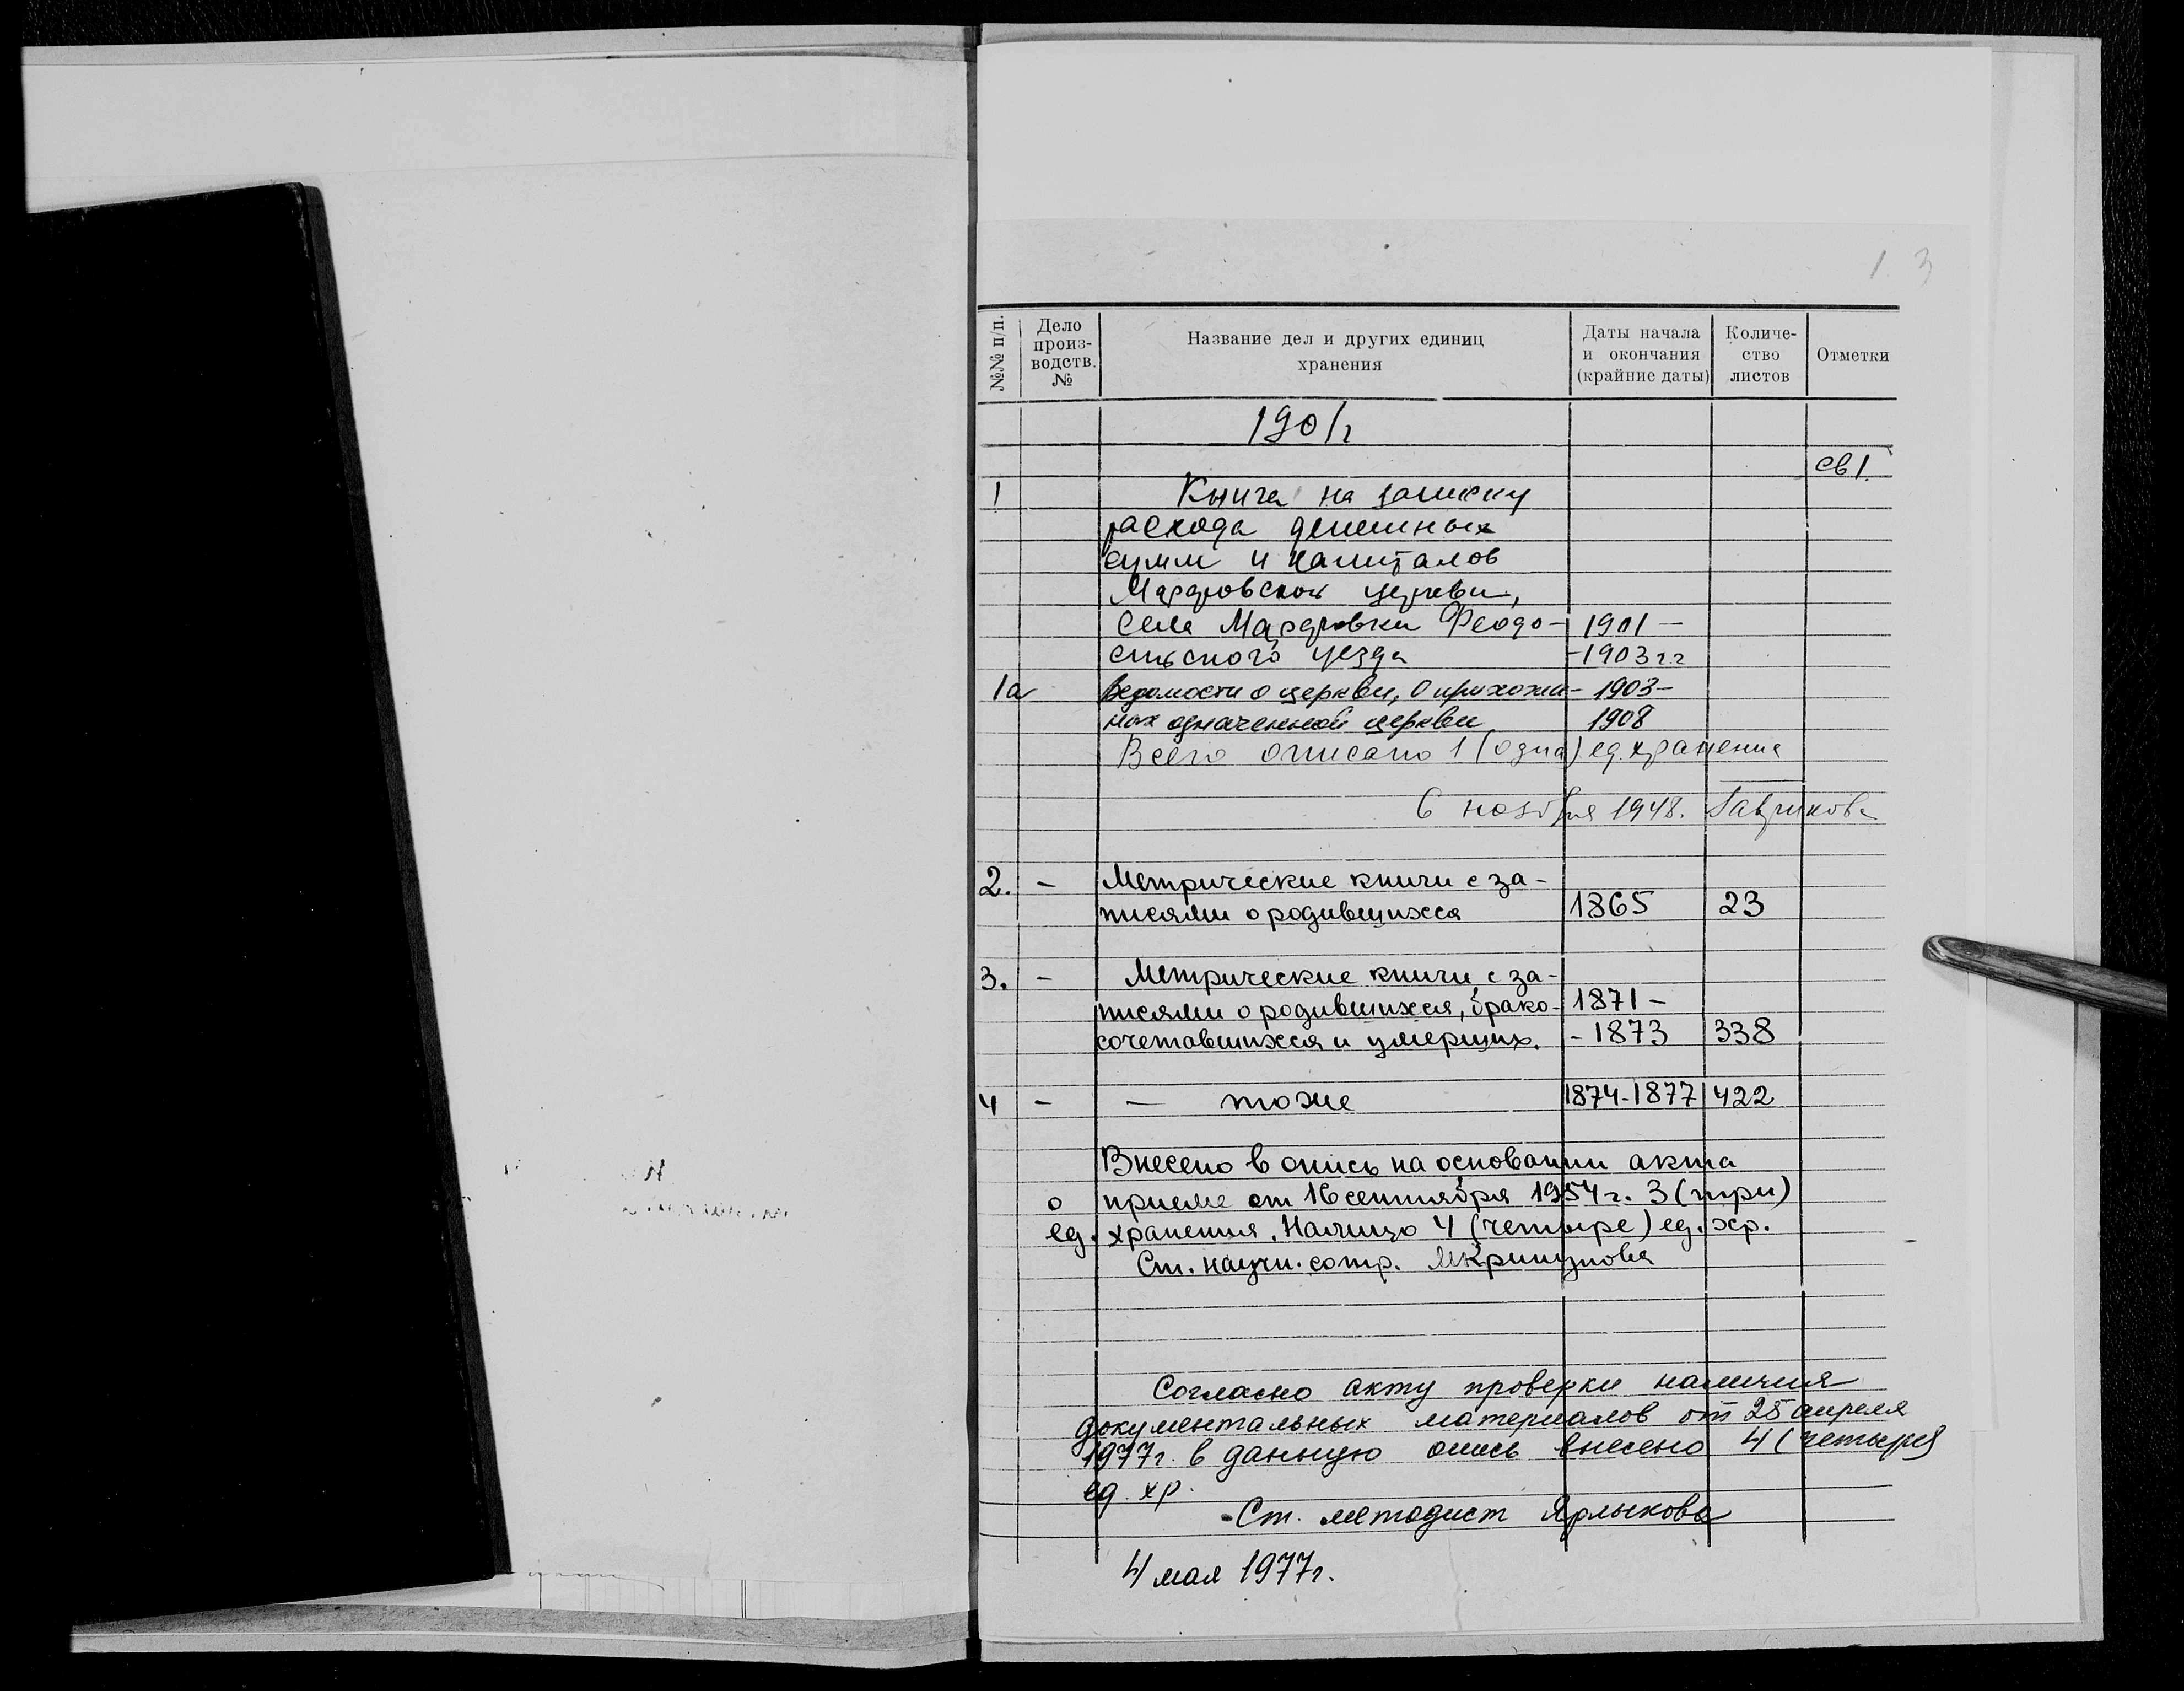 1 3
№№ п/п.
Дело произ-водств. №
Название дел и других единиц хранения
Даты начала и окончания (крайние даты)
Количе-ство листов
Отметки
1901г
св 1.
1 Книга на записку
расхода денежных
сумм и капиталов
церкви,
села Феодо- 1901 -
сийского уезда -1903 г.г
1а Ведомости о церкви, о прихожа- 1903-
нах означенной церкви 1908
Всего описано 1 (одна) ед. хранения
6 ноября 1948. Гаврикова
2. - Метрические книги с за-
писями о родившихся 1865 23
3. - Метрические книги с за-
писями о родившихся, брако- 1871 -
сочетавшихся и умерших. - 1873 338
4 - — тоже 1874-1877 422
Внесено в опись на основании акта
о приеме от 16 сентября 1954 г. 3 (три)
ед. хранения. Налицо 4 (четыре) ед. хр.
Ст. научн. сотр.
Согласно акту проверки наличия
документальных материалов от 25 апреля
1977г. в данную опись внесено 4 (четыре)
ед. хр.
Ст. методист Ярлыкова
4 мая 1977г.